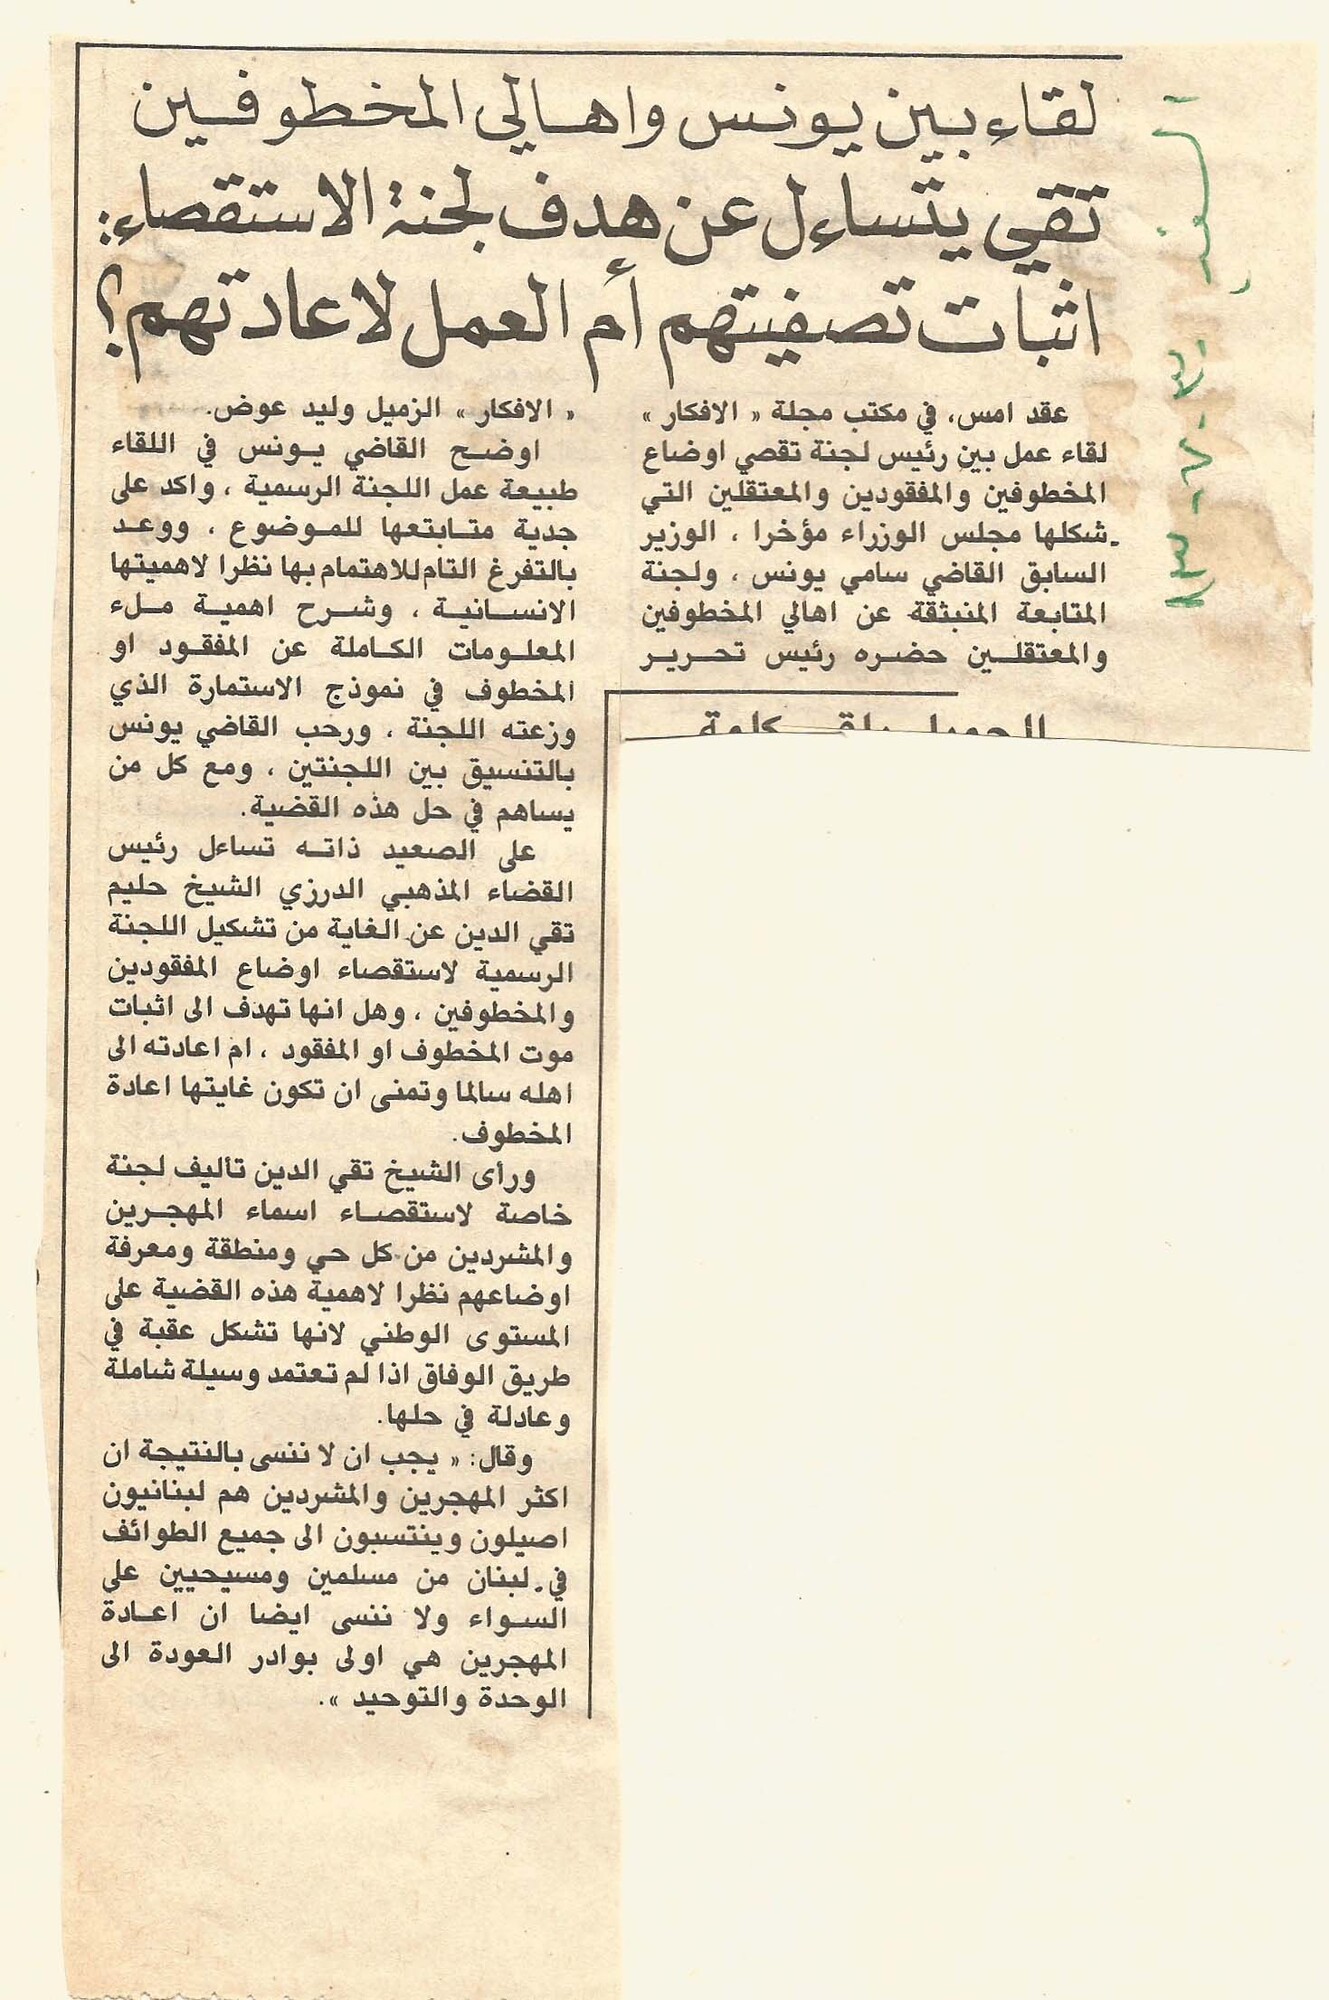 لقاء بين يونس واهالي المخطوفين
تقي يتساءل عن هدف لجنة الاستقصاء:
اثبات تصفيتهم أم العمل لاعادتهم؟
السفير
عقد امس، في مكتب مجلة « الافكار »
لقاء عمل بين رئيس لجنة تقصي اوضاع
المخطوفين والمفقودين والمعتقلين التي
شكلها مجلس الوزراء مؤخرا ، الوزير
السابق القاضي سامي يونس ، ولجنة
المتابعة المنبثقة عن اهالي المخطوفين
والمعتقلين حضره رئيس تحرير
« الافكار » الزميل وليد عوض.
اوضح القاضي يونس في اللقاء
طبيعة عمل اللجنة الرسمية ، واكد على
جدية متابعتها للموضوع ، ووعد
بالتفرغ التام للاهتمام بها نظرا لاهميتها
الانسانية ، وشرح اهمية ملء
المعلومات الكاملة عن المفقود او
المخطوف في نموذج الاستمارة الذي
وزعته اللجنة ، ورحب القاضي يونس
بالتنسيق بين اللجنتين ، ومع كل من
يساهم في حل هذه القضية.
على الصعيد ذاته تساءل رئيس
القضاء المذهبي الدرزي الشيخ حليم
تقي الدين عن الغاية من تشكيل اللجنة
الرسمية لاستقصاء اوضاع المفقودين
والمخطوفين ، وهل انها تهدف الى اثبات
موت المخطوف او المفقود ، ام اعادته الى
اهله سالما وتمنى ان تكون غايتها اعادة
المخطوف.
ورأى الشيخ تقي الدين تأليف لجنة
خاصة لاستقصاء اسماء المهجرين
والمشردين من كل حي ومنطقة ومعرفة
اوضاعهم نظرا لاهمية هذه القضية على
المستوى الوطني لانها تشكل عقبة في
طريق الوفاق اذا لم تعتمد وسيلة شاملة
وعادلة في حلها.
وقال: « يجب ان لا ننسى بالنتيجة ان
اكثر المهجرين والمشردين هم لبنانيون
اصيلون وينتسبون الى جميع الطوائف
في لبنان من مسلمين ومسيحيين على
السواء ولا ننسى ايضا ان اعادة
المهجرين هي اولى بوادر العودة الى
الوحدة والتوحيد ».